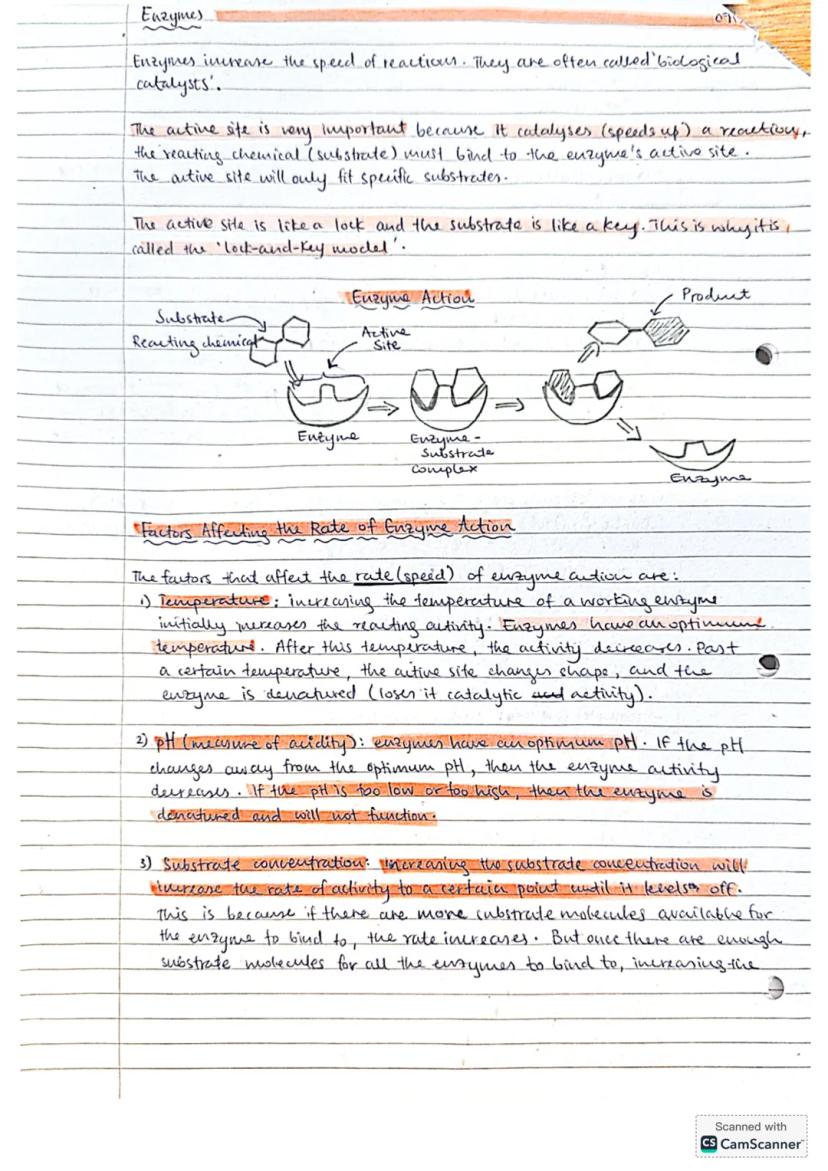 Enzymes
Enzymes increase the speed of reactions. They are often called 'biological
catalysts'.
The active site is very important because it catalyses (speeds up) a reaction,
the reacting chemical (substrate) must bind to the enzyme's active site.
The active site will only fit specific substrates.
The active site is like a lock and the substrate is like a key. This is why it is
called the 'lock-and-key model'.
Enzyme Action
Product
Substrate
Reacting chemical
Active
Site
Enzyme
Enzyme -
Substrate
Complex
Enzyme
Factors Affecting the Rate of Enzyme Action
The factors that affect the rate (speed) of enzyme action are:
1) Temperature: increasing the temperature of a working enzyme
initially increases the reacting activity. Enzymes have an optimum
temperature. After this temperature, the activity decreases. Past
a certain temperature, the active site changes shape, and the
enzyme is denatured (loses it catalytic activity).
2) pH (measure of acidity): enzymes have an optimum pH. If the pH
changes away from the optimum pH, then the enzyme activity
decreases. If the pH is too low or too high, then the enzyme is
denatured and will not function.
3) Substrate concentration: increasing the substrate concentration will
increase the rate of activity to a certain point until it levels off.
This is because if there are more substrate molecules available for
the enzyme to bind to, the rate increases. But once there are enough
substrate molecules for all the enzymes to bind to, increasing the
Scanned with
CS CamScanner